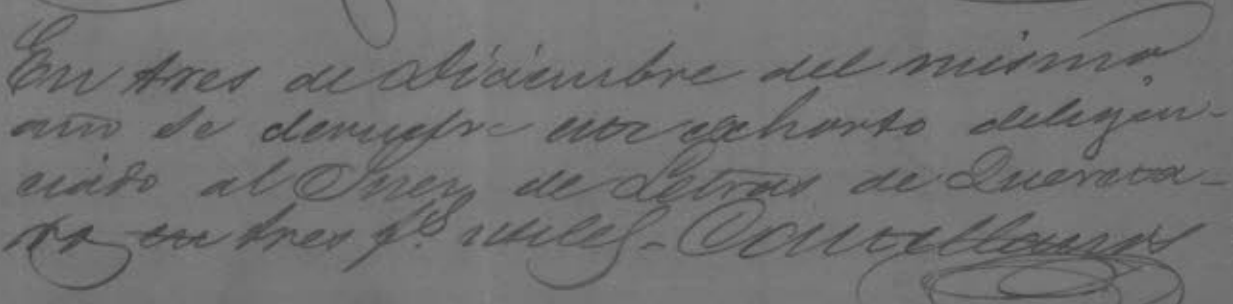 En tres de diciembre del mismo
año se devuelve este exhorto diligen-
ciado al Juez de Letras de Quereta-
ro en tres fs utiles.